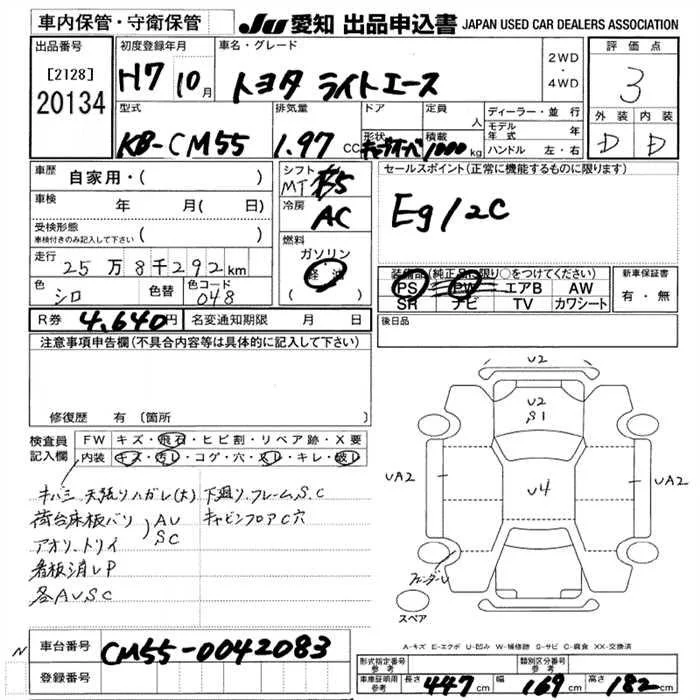 車内保管・守衛保管
JU 愛知 出品申込書 JAPAN USED CAR DEALERS ASSOCIATION
出品番号
[2128]
20134
初度登録年月
H7 10月
車名・グレード
トヨタ ライトエース
2WD
・
4WD
評価点
3
外装 内装
D D
型式
KB-CM55
排気量
1.97 CC
ドア
形状
定員
人
積載
1000 kg
ディーラー・並行
モデル年式 年
ハンドル 左・右
車歴
自家用・( )
車検
年 月( 日)
受検形態
車検付きのみ記入して下さい ( )
走行
25万8千292km
色
シロ
色替
色コード
048
シフト
MT 5
冷房
AC
燃料
ガソリン
軽油
( )
セールスポイント(正常に機能するものに限ります)
Eg/2C
装備品(純正品に限り○をつけてください)
PS PW エアB AW
SR ナビ TV カワシート
新車保証書
有・無
R券 4,640円
名変通知期限 月 日
後日品
注意事項申告欄(不具合内容等は具体的に記入して下さい)
修復歴 有 〔箇所 〕
検査員
記入欄
FW キズ・飛石・ヒビ割・リペア跡・X要
内装 キズ・汚レ・コゲ・穴・スレ・キレ・破レ
キバミ 天張リハガレ(大) 下廻リ.フレームS.C
荷台床板バリ AU キャビンフロアC穴
アオリ.トリイ SC
看板消しP
各AU.SC
U2
U2
S1
UA2
U4
UA2
フェンダーU
スペア
A-キズ E-エクボ U-凹み W-補修跡 S-サビ C-腐食 XX-交換済
N
車台番号 CM55-0042083
登録番号
形式指定番号
参考
類別区分番号
参考
車庫証明用
参考
長さ 447cm
幅 169cm
高さ 182cm